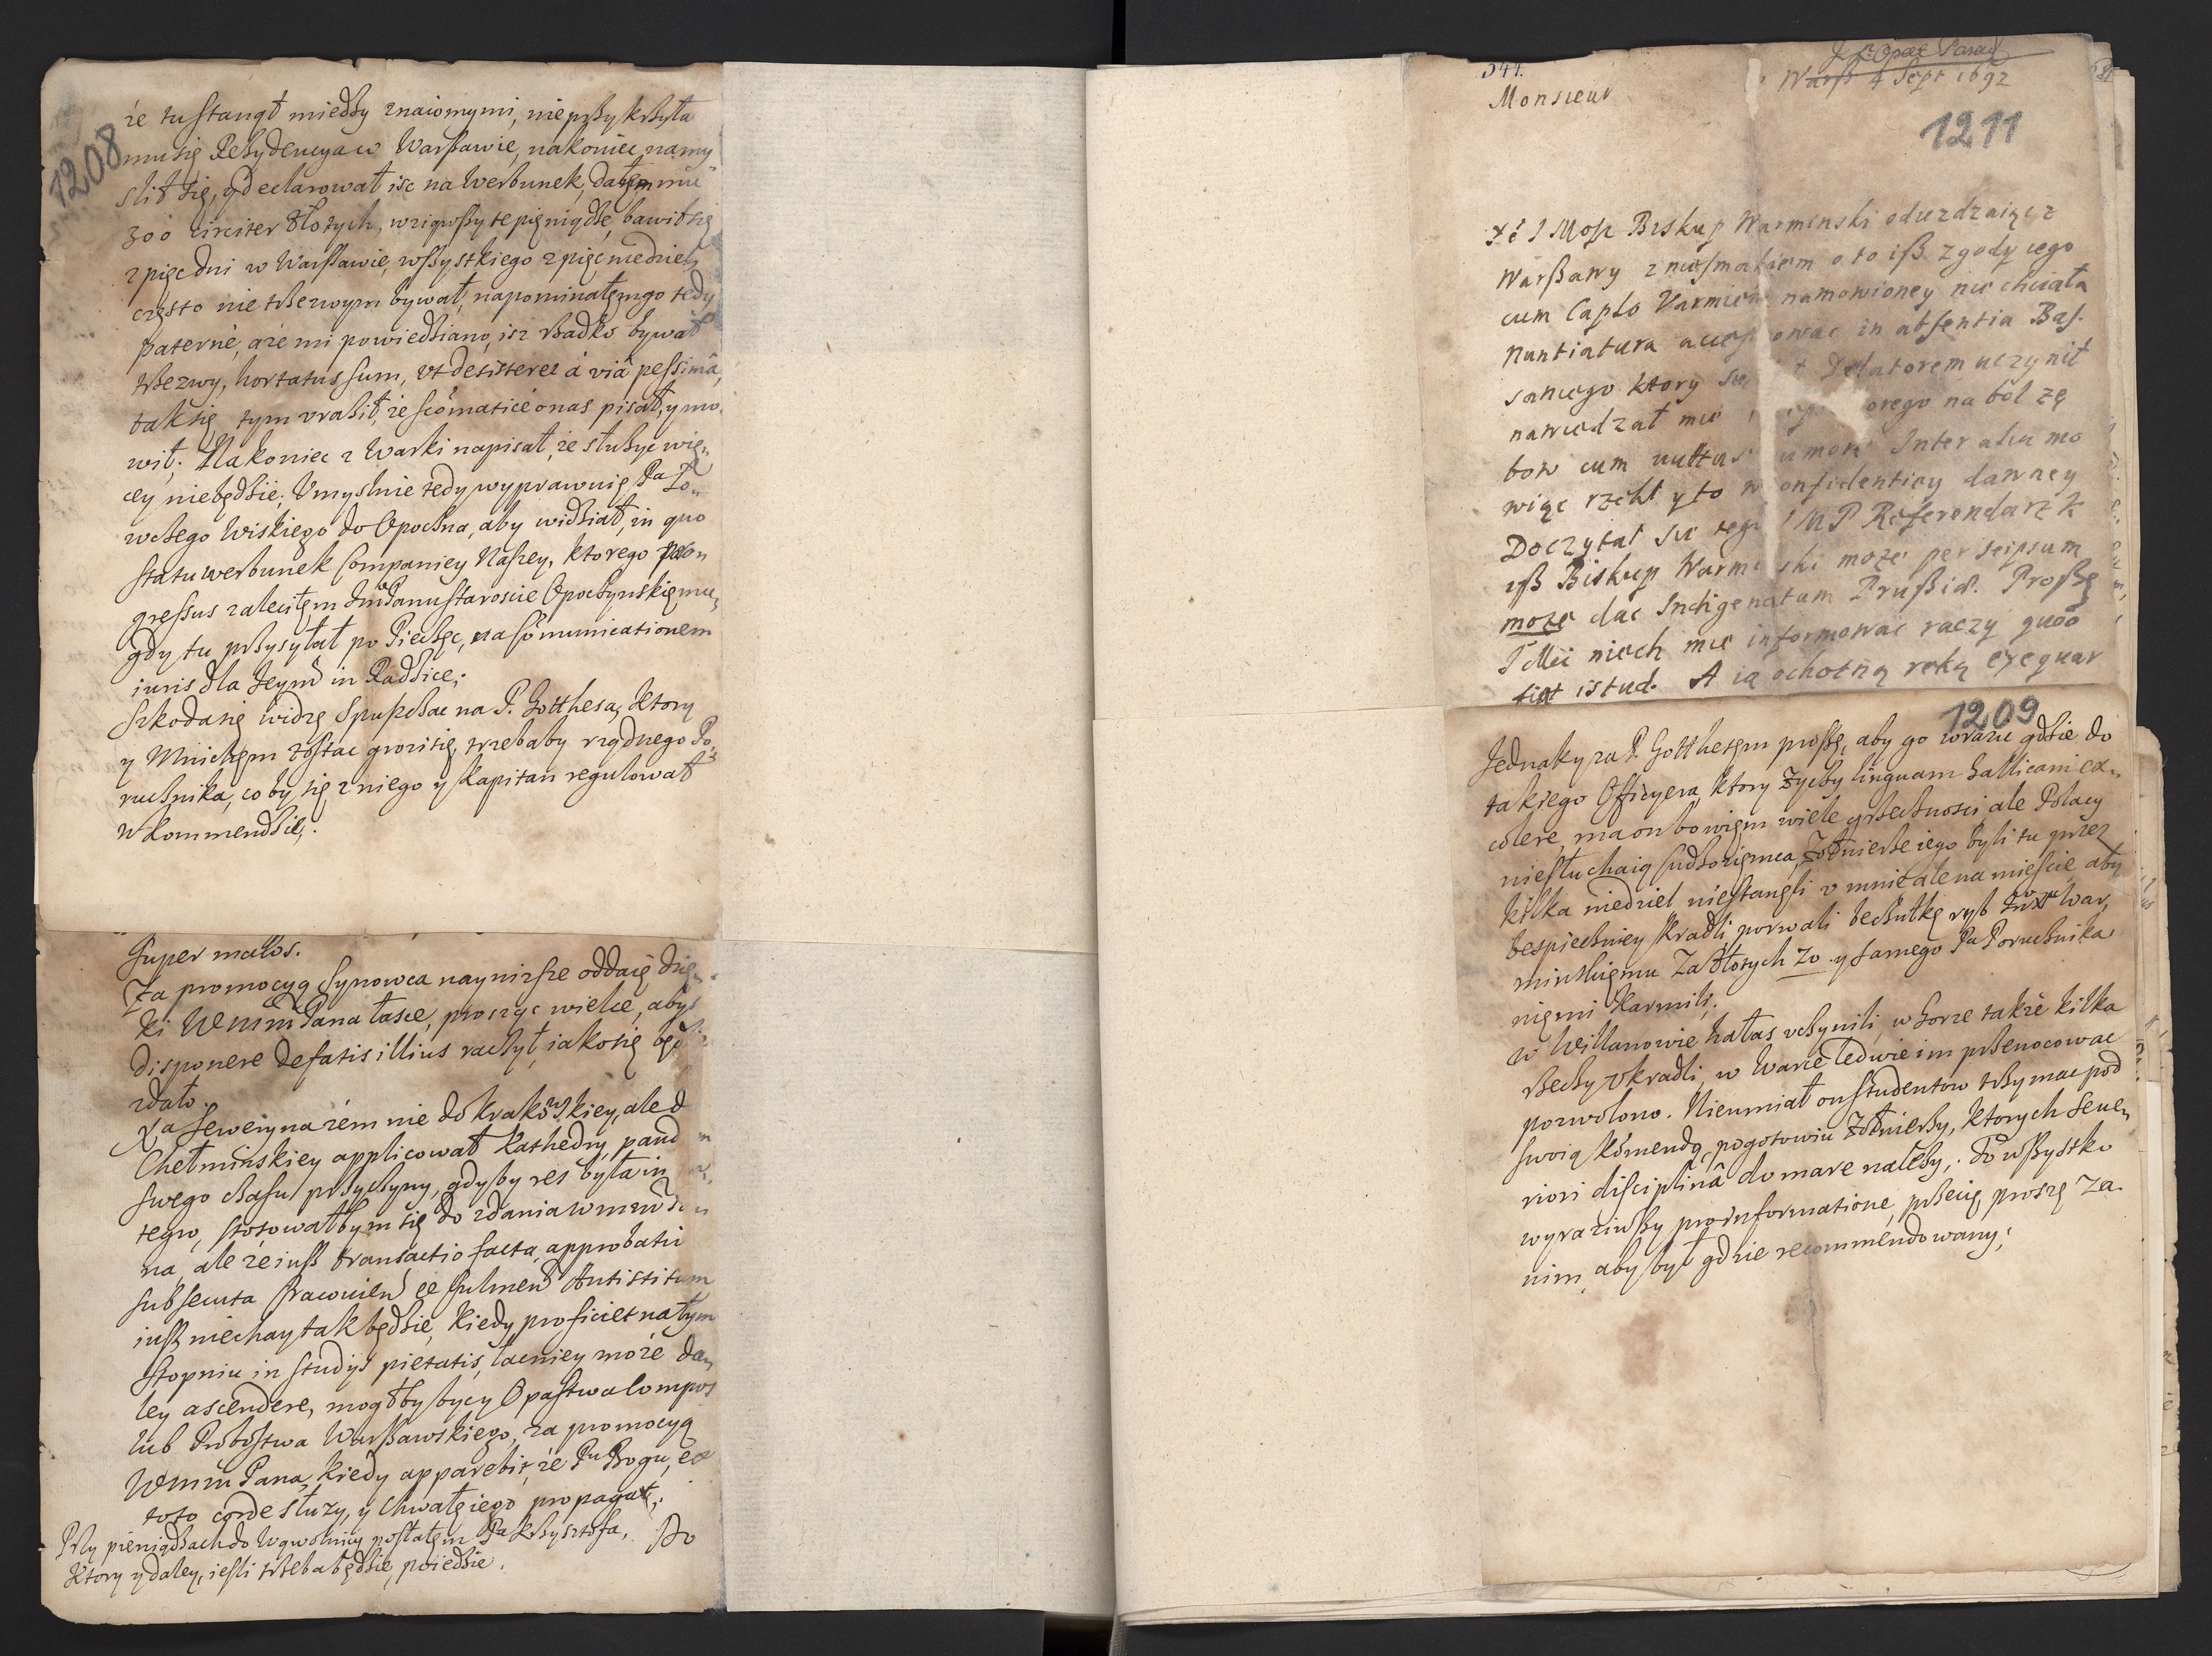 1208
że tu stanął miedzy znaiomymi, nie przykrzyła
mu się Rezydencya w Warszawie, nakoniec namy
slił się, y declarował isc na Werbunek, dałem mu
300 circiter złotych, wziąwszy te pieniądze, bawił się
z pięc dni w Warszawie, wszystkiego z pięc niedziel,
często nie trzezwym bywał, napominałem go tedy
paterne, aże mi powiedziano, isz rzadko bywał
trzezwy, hortatus sum, vt desisteret á viâ pessimâ,
tak się tym vraził, że scomaticé o nas pisał, y mo
wił. Nakoniec z Warki napisał, że słuzyc wię„
cey niebędzie; Vmyslnie tedy wyprawuię Pa Lo„
wczego Wiskiego do Opoczna, aby widział, in quo
statu werbunek Companiey Naszey, ktorego
gressus zaleciłem Panu Staroscie Opoczynskiemu,
gdy tu przysyłał po Pieczęc, na communicationem
iuris dla Jeym in Radzice;
Szkoda się widzę spuszczac na P. Gotthesa, ktory
y Mnichem zostac grozi się, trzebaby rządnego Po„
rucznika, co by się z niego y Kapitan regulował
w kommendzie;
super matos.
Za promocyą Synowca nayniższe oddaię dzię
ki Wmm Pana łasce, prosząc wielce, abys
disponere de fatis illius raczył, iako się będzie
zdało.
Xa Seweryna żem nie do krakowskiey, ale d
Chełminskiey applicował Kathedry, pand
swego czasu przyczyny, gdyby res była in
tegro, stosowałbym się do zdania Wmm Pa
na, ale że iusz transactio facta, approbatio
subsecuta
iusz niechay tak będzie, kiedy proficiet na tym
Stopniu in studijs pietatis, łacniey może da„
ley ascendere, mogłby bycy Opastwa compos
lub Probostwa Warszawskiego, za promocyą
Wmm Pana, kiedy apparebit, że Pu Bogu, ex
toto corde służy, y Chwałę iego propagat;
Przy pieniądzach do Wąwolnicy posłałem Pa Krzysztofa, Do
ktory y daley, iesli trzeba będzie, poiedzie.
344.
Monsieur
Warsz 4 Sept 1692
1211
Że J Mosc Biskup Warminski odiezdzaiąc z
Warszawy z niesmakiem o to isz zgody iego
cum Caplo Varmien namowioney nie chciała
Nuntiatura in absentia Bas.
saniego ktory Delatorem uczynił
nawiedzał mie orego na bol zę
bow cum Inter alia mo
wiąc rzekł y to w onfidentiey dawney
Doczytał sie tego J M P Referendarz K
isz Biskup Warminski może per seipsum
może dac Indigenatum Prussiae. Proszę
niech mie informowac raczy quod
fiat istud. A ią ochotną ręką exequar
1209
Jednaky za P. Gotthesem proszę, aby go wrazic gdzie do
takiego Officyera, ktory życzy linguam Gallicam ex„
colere, ma on bowiem wiele grzecznosci, ale Polacy
niesłuchaią Cudzoziemca, Zołnierze iego byli tu przez
kilka niedziel niestanęli v mnie ale na miescie, aby
bespieczniey kradli, porwali beczułkę ryb War,
minskiemu za złotych 20. y samego Pa Porucznika
niemi karmili;
w Willanowie hałas vczynili, w Gorze także kilka
rzeczy vkradli, w Warce ledwie im przenocowac
pozwolono. Nieumiał on studentow trzymac pod
swoią komendą, pogotowiu Zołnierzy, ktorych seve„
riori disciplinâ domare należy; To wszystko
wyraziwszy pro informatione, przecię proszę za
nim, aby był gdzie recommendowany;